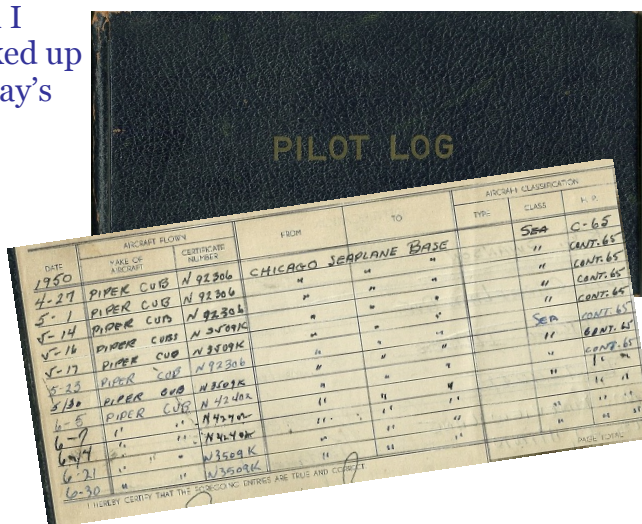 I
ked up
ay's
PILOT LOG
AIRCRAFT FLOWN FROM TO AIRCRAFT CLASSIFICATION
DATE MAKE OF AIRCRAFT CERTIFICATE NUMBER TYPE CLASS H. P.
1950
4-27 PIPER CUB N 92306 CHICAGO SEAPLANE BASE SEA C-65
5-1 PIPER CUB N 92306 " " " " CONT. 65
5-14 PIPER CUB N 92306 " " " " CONT. 65
5-16 PIPER CUB N 3509K " " " " CONT. 65
5-17 PIPER CUB N 3509K " " " " CONT. 65
5-23 PIPER CUB N 92306 " " " SEA CONT. 65
5/30 PIPER CUB N 3509K " " " " CONT. 65
6-5 PIPER CUB N 4240K " " " " CONT. 65
6-7 " " " " " " " "
6-14 " " " " " " " "
6-21 " " N3509K " " " " " "
6-30 " " N3509K " " "
I HEREBY CERTIFY THAT THE FOREGOING ENTRIES ARE TRUE AND CORRECT. PAGE TOTAL